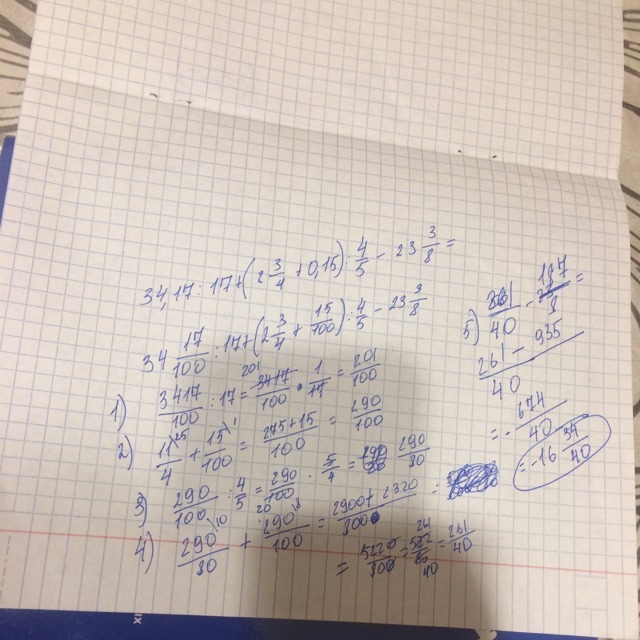 34,17 : 17 + (2 3/4 + 0,15) : 4/5 - 23 3/8 =
34 17/100 : 17 + (2 3/4 + 15/100) : 4/5 - 23 3/8
1) 3417/100 : 17 = 3417/100 · 1/17 = 201/100
2) 11/4 + 15/100 = 275+15/100 = 290/100
3) 290/100 : 4/5 = 290/100 · 5/4 = 290/80
4) 290/80 + 290/100 = 2900+2320/800 =
= 5220/800 = 522/80 = 261/40
5) 261/40 - 187/8 =
261 - 935/40
= - 674/40
= -16 34/40